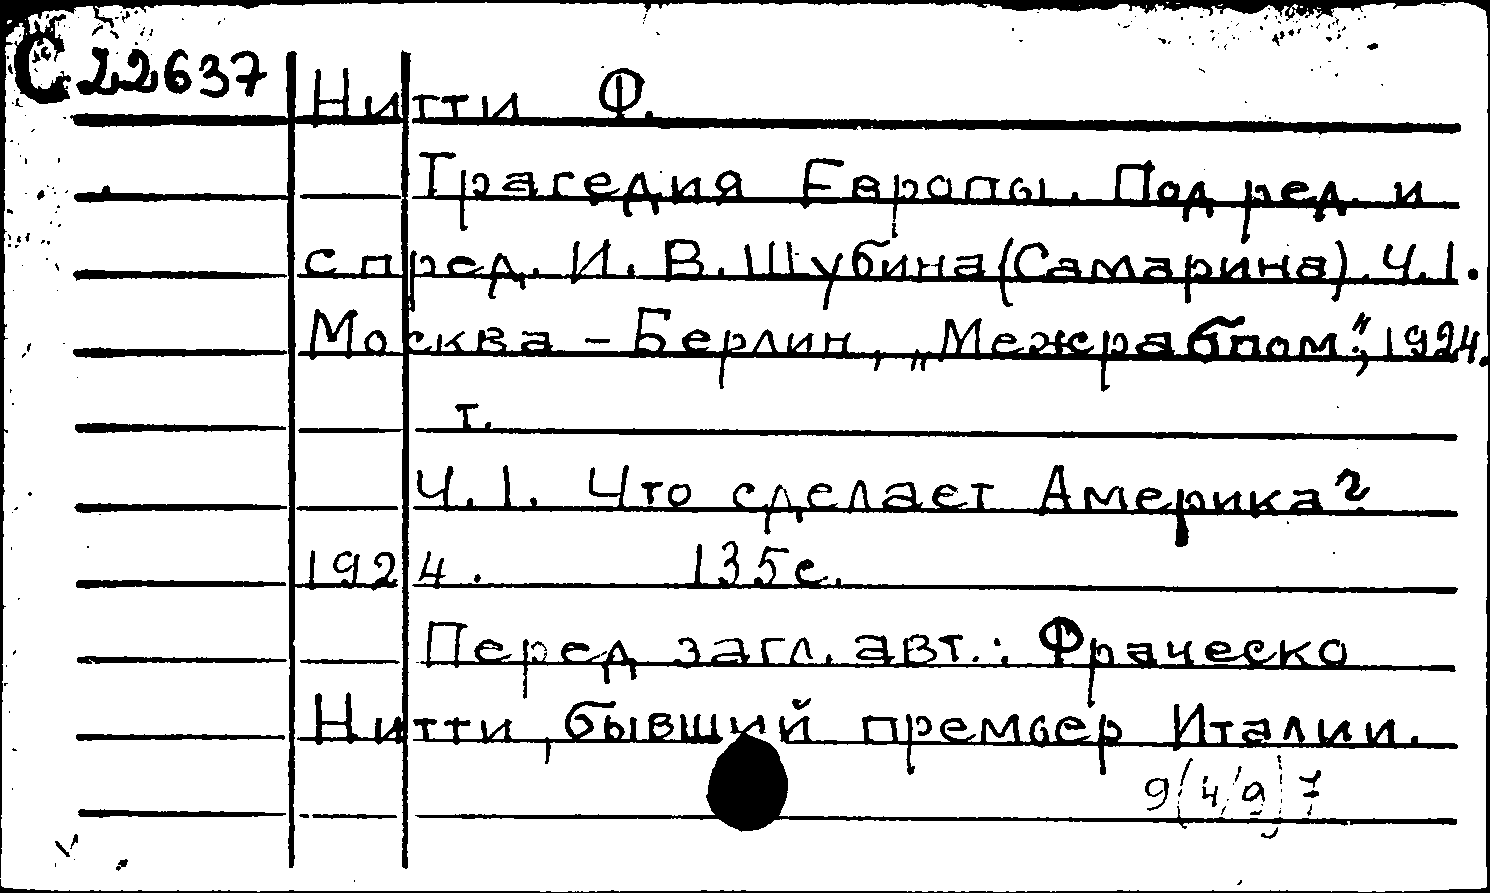 С 22637
Нитти Ф.
Трагедия Европы. Под ред. и
с пред. И. В. Шубина (Самарина). Ч.1.
Москва - Берлин, „Межрабпом", 1924.
т.
Ч. 1. Что сделает Америка?
1924. 135с.
Перед загл. авт.: Фраческо
Нитти, бывший премьер Италии.
9(4/9)7